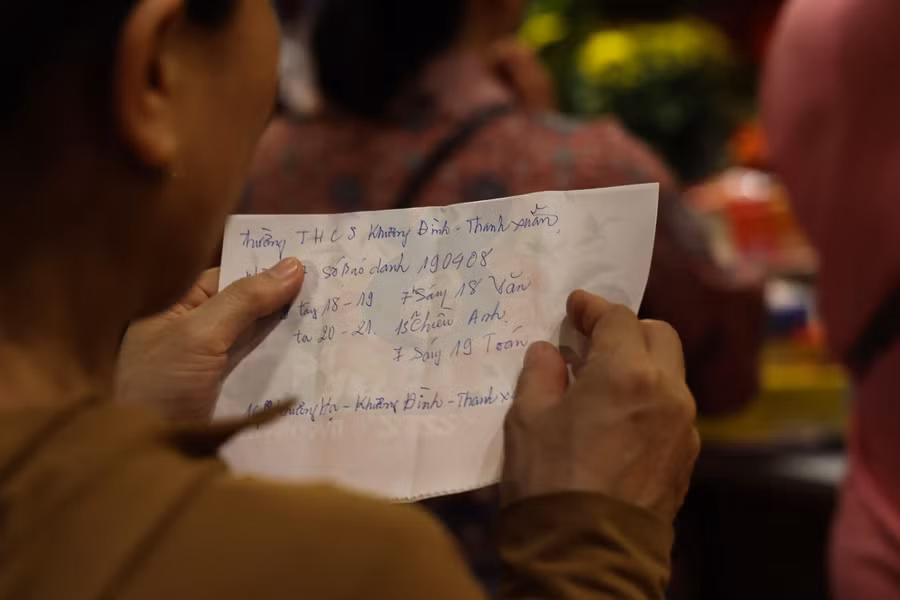 Trường THCS Khương Đình - Thanh Xuân
Số báo danh 190408
tây 18-19 7h Sáng 18 Văn
ta 20-21. 15h Chiều Anh
7 Sáng 19 Toán
Khương Hạ - Khương Đình - Thanh X